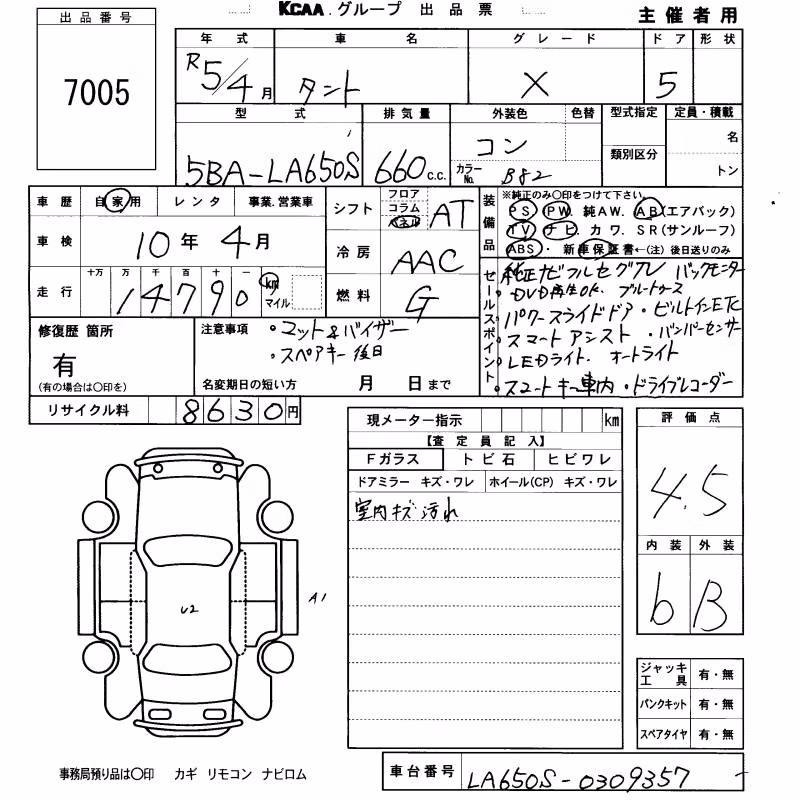 出品番号
7005
KCAA.グループ 出品票
主催者用
年式 車名 グレード ドア 形状
R5/4月 タント X 5
型式 排気量 外装色 色替 型式指定 定員・積載
5BA-LA650S 660c.c. コン 名
カラーNo. B82 類別区分 トン
車歴 自家用 レンタ 事業.営業車
車検 10年4月
走行 十万 万 千 百 十 一
14790 km マイル
シフト フロア コラム パネル AT
冷房 AAC
燃料 G
装備品 ※純正のみ○印をつけて下さい。
PS PW 純AW. AB(エアバック)
TV ナビ カワ. SR(サンルーフ)
ABS・ 新車保証書←(注)後日送りのみ
セールスポイント
純正ナビフルセグTV バックモニター
・DVD再生OK. ブルートゥース
パワースライドドア・ビルトインETC
スマートアシスト ・バンパーセンサー
LEDライト. オートライト
・スマートキー車内・ドライブレコーダー
修復歴 箇所
有
(有の場合は○印を)
注意事項 ・マット&バイザー
・スペアキー後日
名変期日の短い方 月 日まで
リサイクル料 8630円
現メーター指示 km
【査定員記入】
Fガラス トビ石 ヒビワレ
ドアミラー キズ・ワレ ホイール(CP) キズ・ワレ
室内キズ汚れ
評価点
4.5
内装 外装
b B
A1
U2
ジャッキ工具 有・無
パンクキット 有・無
スペアタイヤ 有・無
事務局預り品は○印 カギ リモコン ナビロム
車台番号 LA650S-0309357